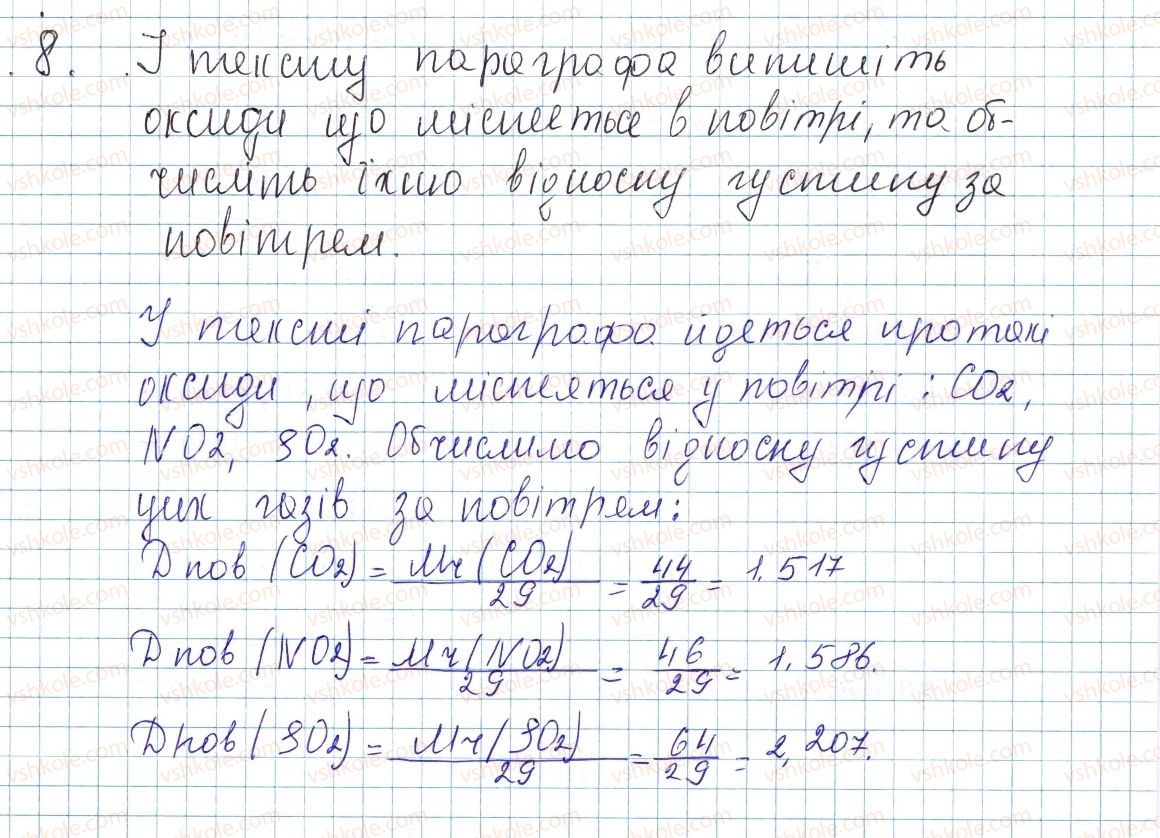 8. З тексту параграфа випишіть
оксиди що містяться в повітрі, та об-
числіть їхню відносну густину за
повітрем.
У тексті параграфа йдеться про такі
оксиди, що містяться у повітрі: CO2,
NO2, SO2. Обчислимо відносну густину
цих газів за повітрям:
Dпов (CO2) = Mr (CO2) / 29 = 44 / 29 = 1.517
Dпов (NO2) = Mr (NO2) / 29 = 46 / 29 = 1.586.
Dпов (SO2) = Mr (SO2) / 29 = 64 / 29 = 2,207.
vshkole.com